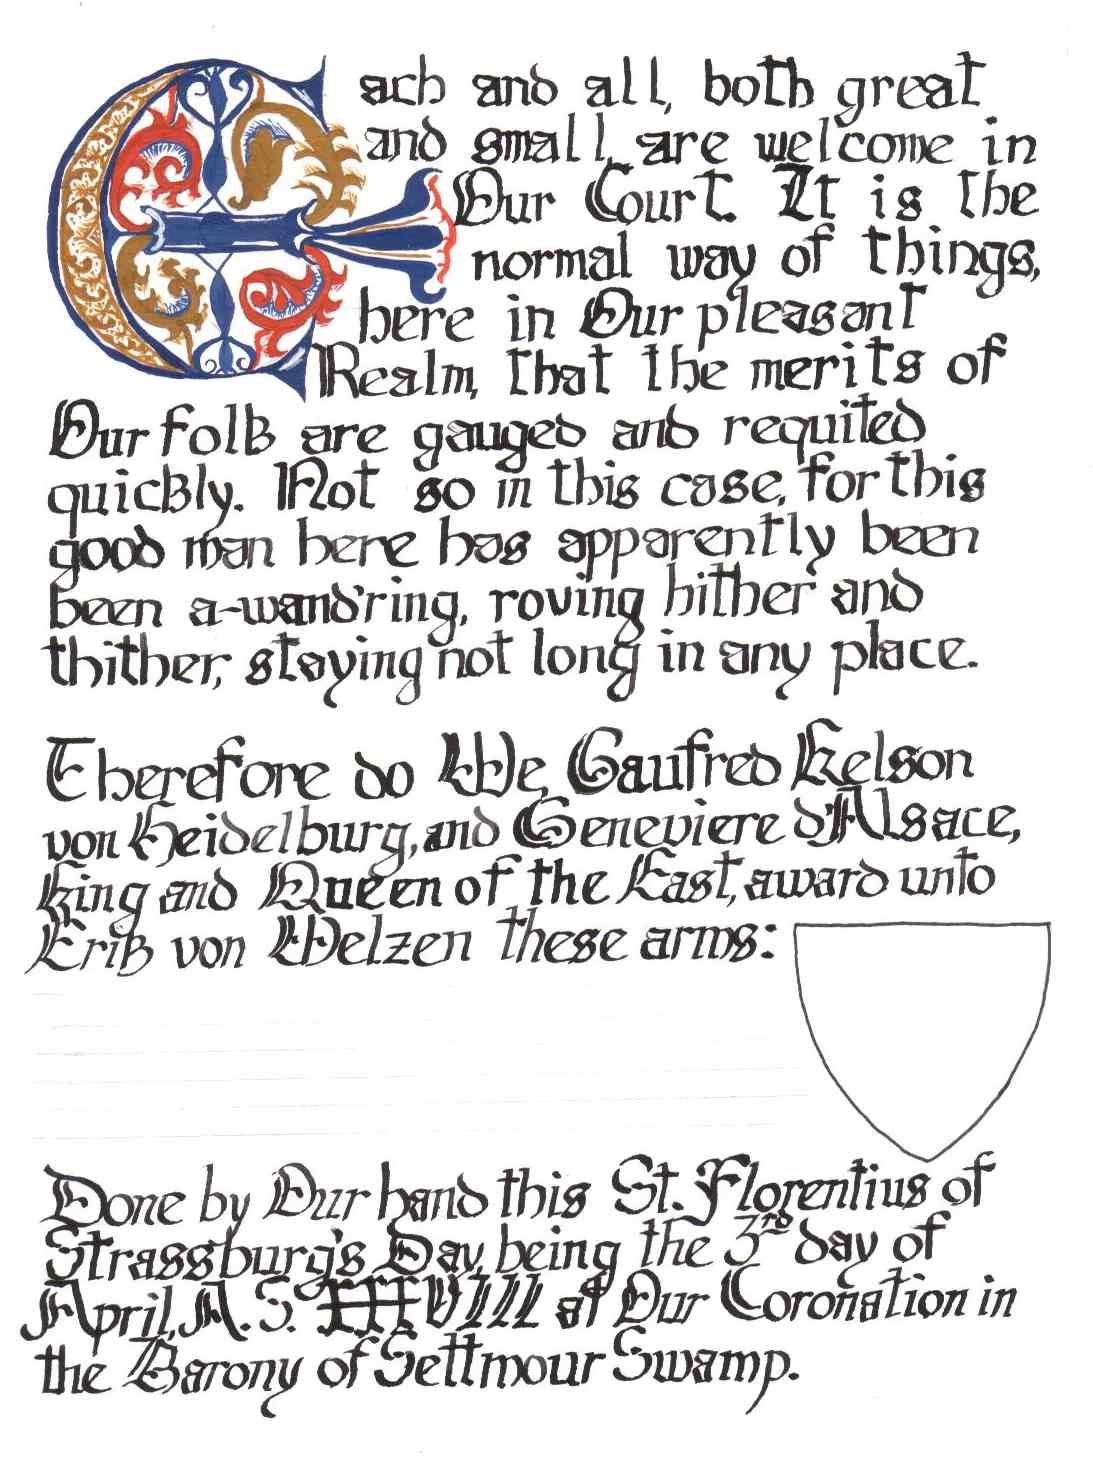 Each and all, both great
and small, are welcome in
Our Court. It is the
normal way of things,
here in Our pleasant
Realm, that the merits of
Our folk are gauged and requited
quickly. Not so in this case, for this
good man here has apparently been
been a-wand'ring, roving hither and
thither, staying not long in any place.
Therefore do We, Gaufred Kelson
von Heidelburg, and Geneviere d'Alsace,
King and Queen of the East, award unto
Erik von Welzen these arms:
Done by Our hand this St. Florentius of
Strassburg's Day, being the 3rd day of
April, A.S. XXXVIII at Our Coronation in
the Barony of Settmour Swamp.